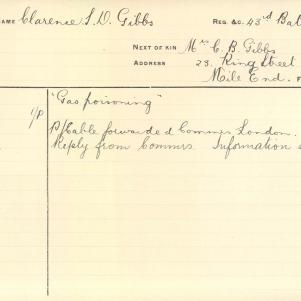 NAME Clarence S. D. Gibbs REG. &C. 43rd Bat
NEXT OF KIN Mrs C. B. Gibbs
ADDRESS 23. King Street
Mile End.
1/P "Gas poisoning"
P/Cable forwarded Commrs London.
Reply from Commrs Information